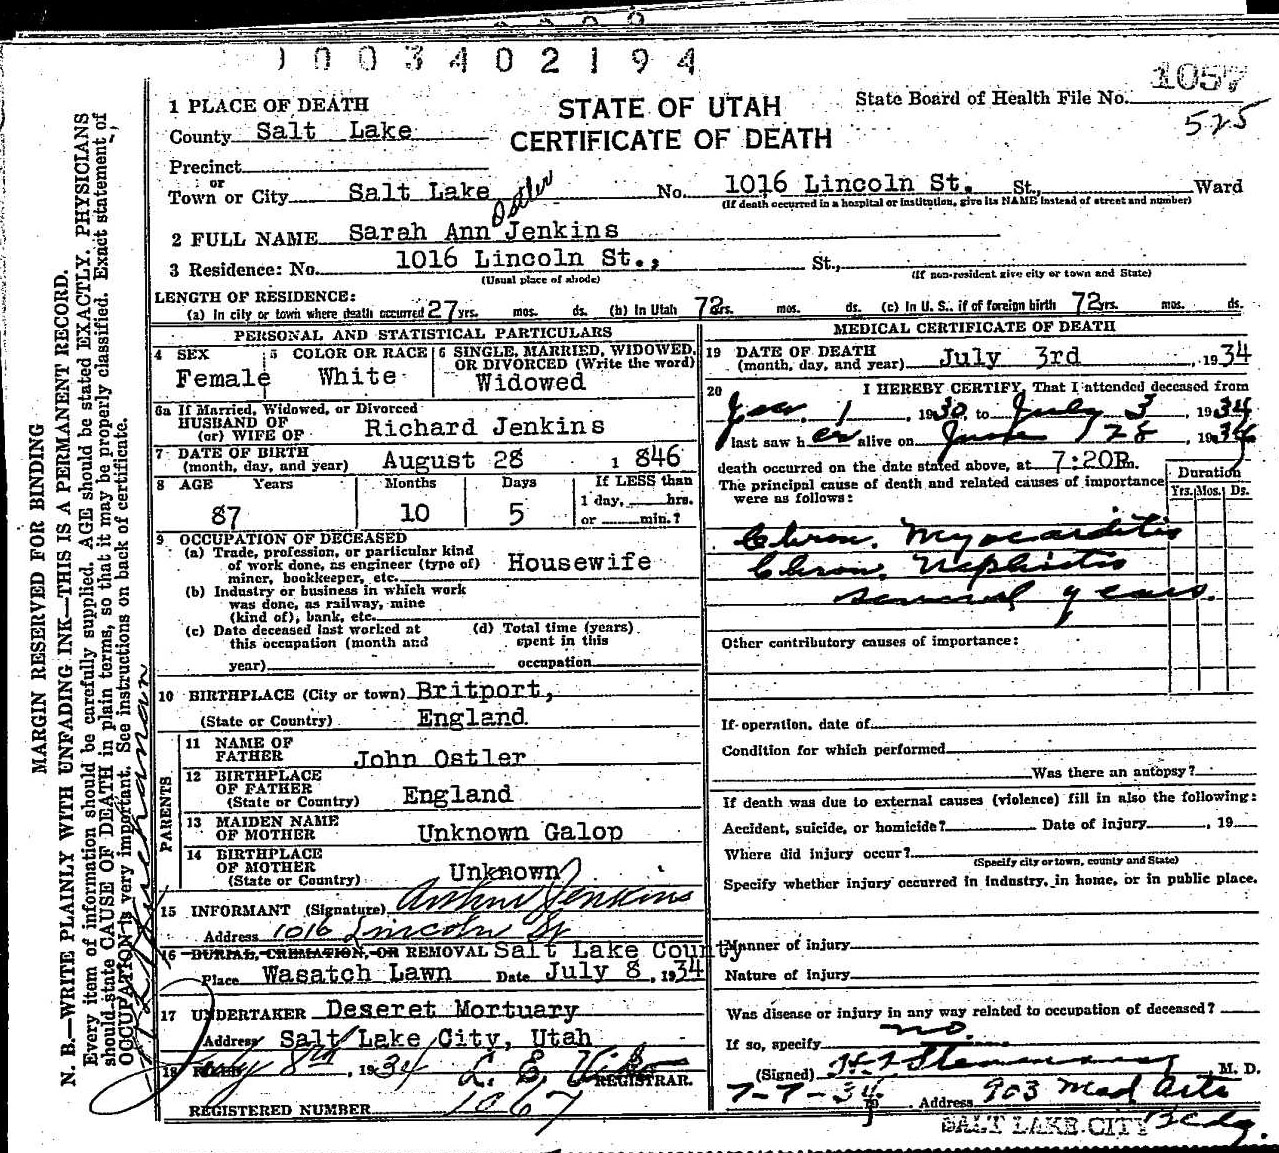 1003402194
1 PLACE OF DEATH
STATE OF UTAH
CERTIFICATE OF DEATH
State Board of Health File No. 1057
525
County Salt Lake
Precinct
or
Town or City Salt Lake No. 1016 Lincoln St. St., Ward
(If death occurred in a hospital or institution, give its NAME instead of street and number)
Ostler
2 FULL NAME Sarah Ann Jenkins
3 Residence: No. 1016 Lincoln St., St.,
(Usual place of abode) (If non-resident give city or town and State)
LENGTH OF RESIDENCE:
(a) In city or town where death occurred 27 yrs. mos. ds. (b) In Utah 72 rs. mos. ds. (c) In U. S., if of foreign birth 72 yrs. mos. ds.
PERSONAL AND STATISTICAL PARTICULARS
4 SEX Female
5 COLOR OR RACE White
6 SINGLE, MARRIED, WIDOWED, OR DIVORCED (Write the word) Widowed
6a If Married, Widowed, or Divorced
HUSBAND OF
(or) WIFE OF Richard Jenkins
7 DATE OF BIRTH
(month, day, and year) August 28 1846
8 AGE Years Months Days If LESS than
87 10 5 1 day, hrs.
or min.?
9 OCCUPATION OF DECEASED
(a) Trade, profession, or particular kind
of work done, as engineer (type of)
miner, bookkeeper, etc. Housewife
(b) Industry or business in which work
was done, as railway, mine
(kind of), bank, etc.
(c) Date deceased last worked at
this occupation (month and
year)
(d) Total time (years)
spent in this
occupation
10 BIRTHPLACE (City or town) Britport,
(State or Country) England
PARENTS
11 NAME OF
FATHER John Ostler
12 BIRTHPLACE
OF FATHER
(State or Country) England
13 MAIDEN NAME
OF MOTHER Unknown Galop
14 BIRTHPLACE
OF MOTHER
(State or Country) Unknown
15 INFORMANT (Signature) Arthur Jenkins
Address 1016 Lincoln St
16 BURIAL, CREMATION, OR REMOVAL Salt Lake County
Place Wasatch Lawn Date July 8, 1934
17 UNDERTAKER Deseret Mortuary
Address Salt Lake City, Utah
18 July 8th, 1934 L. E.
REGISTRAR.
REGISTERED NUMBER 1067
MEDICAL CERTIFICATE OF DEATH
19 DATE OF DEATH
(month, day, and year) July 3rd, 1934
20 I HEREBY CERTIFY, That I attended deceased from
Jan. 1, 1930 to July 3, 1934
last saw her alive on June 28, 1934
death occurred on the date stated above, at 7:20P m.
The principal cause of death and related causes of importance
were as follows:
Duration
Yrs. Mos. Ds.
Chron. Myocarditis
Chron. Nephritis
several years.
Other contributory causes of importance:
If operation, date of
Condition for which performed
Was there an autopsy?
If death was due to external causes (violence) fill in also the following:
Accident, suicide, or homicide? Date of injury , 19
Where did injury occur?
(Specify city or town, county and State)
Specify whether injury occurred in industry, in home, or in public place.
Manner of injury
Nature of injury
Was disease or injury in any way related to occupation of deceased?
no
If so, specify
(Signed) M. D.
7-7-34 Address 903 Med Arts
SALT LAKE CITY Bldg.
MARGIN RESERVED FOR BINDING
N. B.—WRITE PLAINLY WITH UNFADING INK—THIS IS A PERMANENT RECORD.
Every item of information should be carefully supplied. AGE should be stated EXACTLY. PHYSICIANS
should state CAUSE OF DEATH in plain terms, so that it may be properly classified. Exact statement of
OCCUPATION is very important. See instructions on back of certificate.